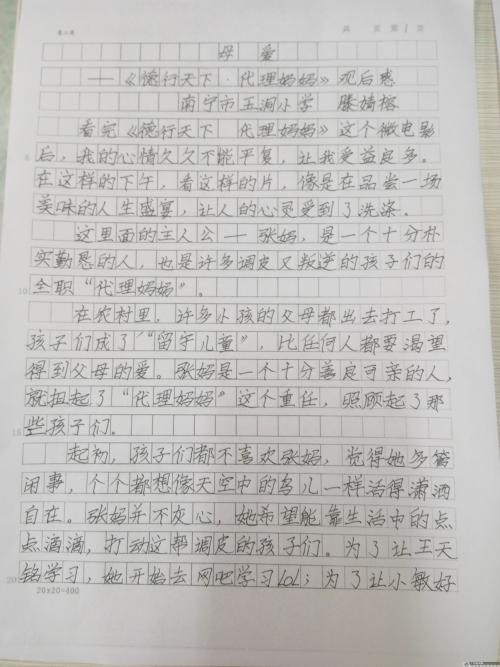 第二页
共 页 第 1 页
母爱
——《德行天下·代理妈妈》观后感
南宁市玉洞小学 滕婧榕
看完《德行天下 代理妈妈》这个微电影
5
后，我的心情久久不能平复，让我受益良多。
在这样的下午，看这样的片，像是在品尝一场
美味的人生盛宴，让人的心灵受到了洗涤。
这里面的主人公——张妈，是一个十分朴
实勤恳的人，也是许多调皮又叛逆的孩子们的
10 全职“代理妈妈”。
在农村里，许多小孩的父母都出去打工了，
孩子们成了“留守儿童”，比任何人都要渴望
得到父母的爱。张妈是一个十分善良可亲的人，
就担起了“代理妈妈”这个重任，照顾起了那
15 些孩子们。
起初，孩子们都不喜欢张妈，觉得她多管
闲事，个个都想像天空中的鸟儿一样活得潇洒
自在。张妈并不灰心，她希望能靠生活中的点
点滴滴，打动这帮调皮的孩子们。为了让王天
20 铭学习，她开始去网吧学习LOL；为了让小敏好
20×20=400